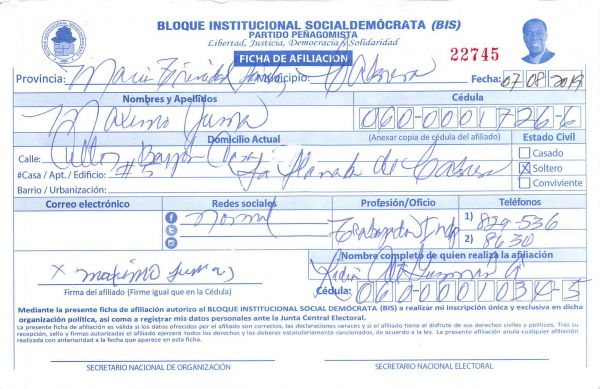 BLOQUE INSTITUCIONAL SOCIALDEMÓCRATA (BIS)
PARTIDO PEÑAGOMISTA
Libertad, Justicia, Democracia y Solidaridad
22745
FICHA DE AFILIACIÓN
Provincia: Maria Trinidad Municipio: Cabrera Fecha: 07-08-2019
Nombres y Apellidos Cédula
Maximo 060-0001726-6
Domicilio Actual (Anexar copia de cédula del afiliado) Estado Civil
Calle: Casado
#Casa / Apt. / Edificio: # 5 de Cabrera X Soltero
Barrio / Urbanización: Conviviente
Correo electrónico Redes sociales Profesión/Oficio Teléfonos
Normal Trabajador 1) 829-536
2) 8630
Nombre completo de quien realiza la afiliación
x maximo
Firma del afiliado (Firme igual que en la Cédula) Cédula: 060-0001034-5
Mediante la presente ficha de afiliación autorizo al BLOQUE INSTITUCIONAL SOCIAL DEMÓCRATA (BIS) a realizar mi inscripción única y exclusiva en dicha
organización política, así como a registrar mis datos personales ante la Junta Central Electoral.
La presente ficha de afiliación es válida si los datos ofrecidos por el afiliado son correctos, las declaraciones veraces y si el afiliado tiene el disfrute de sus derechos civiles y políticos. Tras su
recepción, sello y firmas autorizadas el afiliado ejercerá todos los derechos y los deberes estatutariamente sancionados, de acuerdo a la ley. La presente afiliación anula cualquier afiliación
realizada con anterioridad a la fecha que aparece en esta ficha.
SECRETARIO NACIONAL DE ORGANIZACIÓN SECRETARIO NACIONAL ELECTORAL